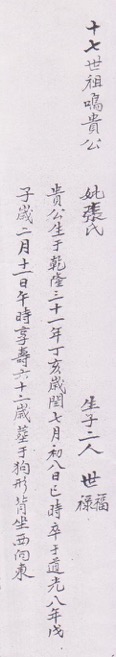 十七世祖鳴貴公
妣張氏 生子二人 世福祿
貴公生于乾隆三十一年丁亥歲閏七月初八日巳時卒于道光八年戊
子歲二月十二日午時享壽六十二歲塟于狗形背坐西向東